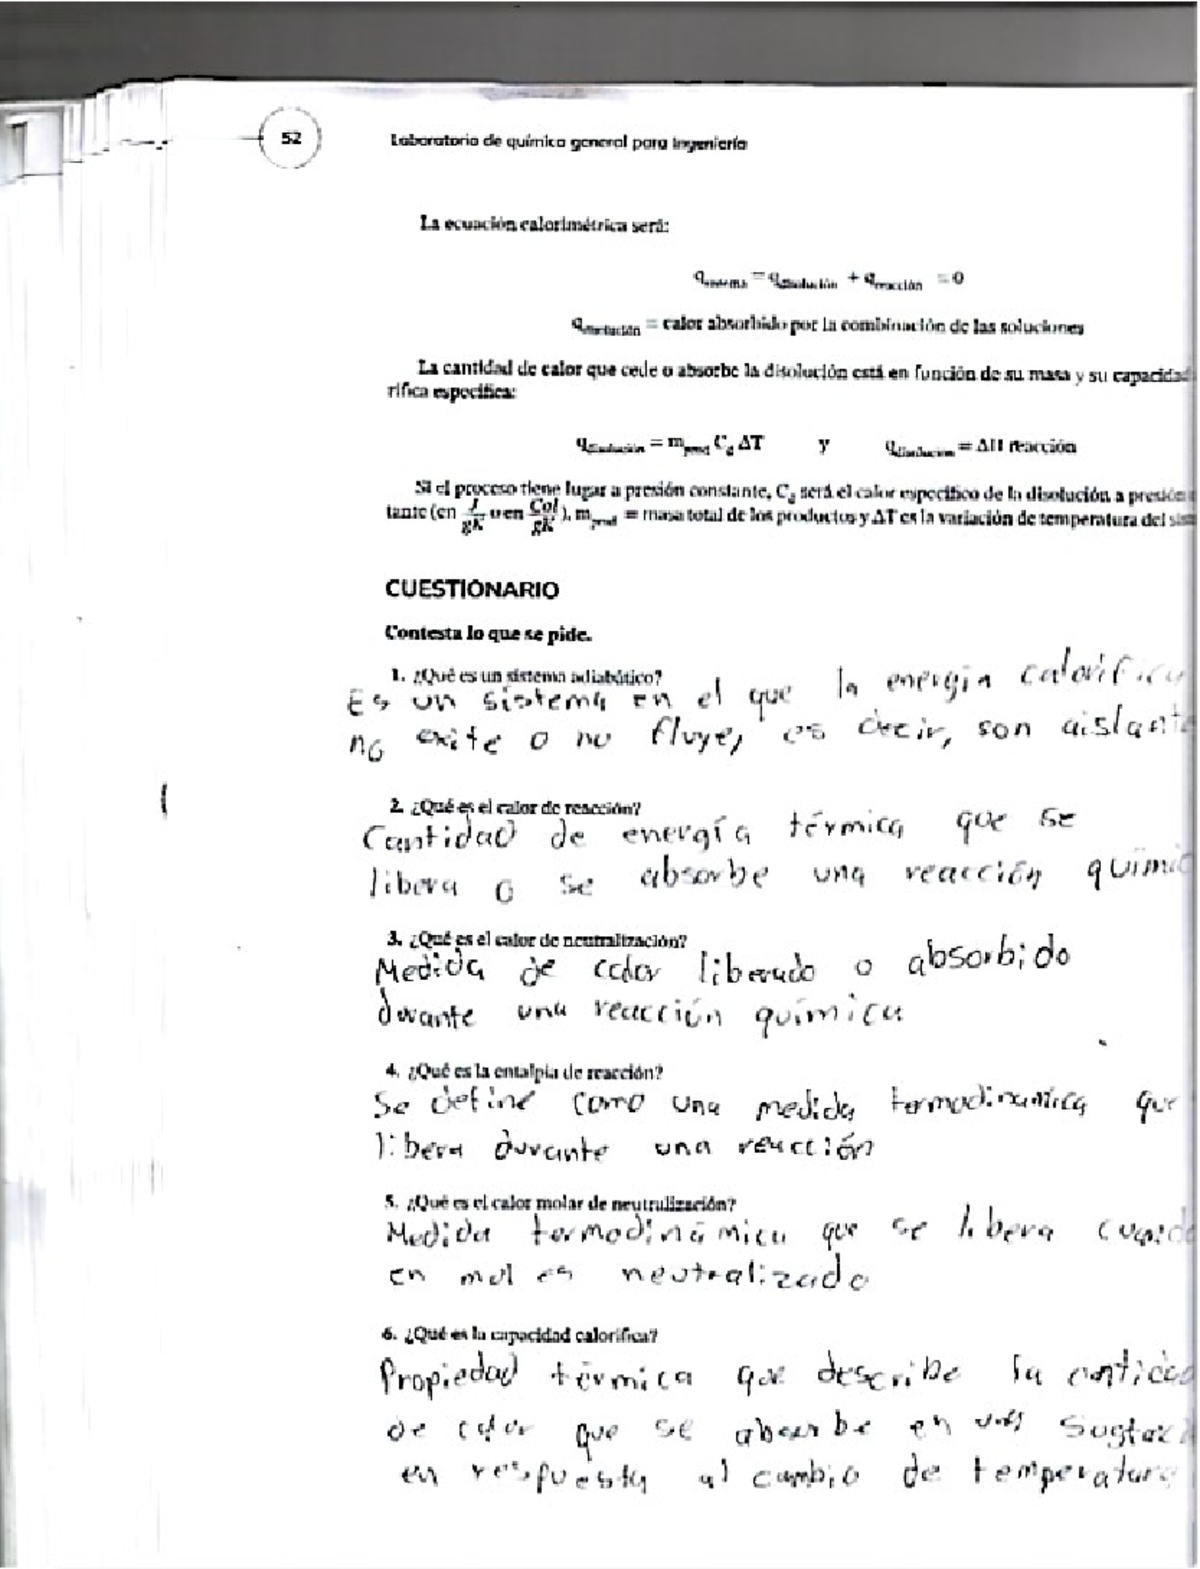 52
Laboratorio de química general para Ingeniería
La ecuación calorimétrica será:
q sistema = q disolución + q reacción = 0
q disolución = calor absorbido por la combinación de las soluciones
La cantidad de calor que cede o absorbe la disolución está en función de su masa y su capacidad
rífica específica:
q disolución = m prod C d ΔT y q disolución = ΔH reacción
Si el proceso tiene lugar a presión constante, C d será el calor específico de la disolución a presión
tante (en J/gK o en Cal/gK), m prod = masa total de los productos y ΔT es la variación de temperatura del sis
CUESTIONARIO
Contesta lo que se pide.
1. ¿Qué es un sistema adiabático?
Es un sistema en el que la energía calorífica
no exite o no fluye, es decir, son aislante
2. ¿Qué es el calor de reacción?
Cantidad de energía térmica que se
libera o se absorbe una reacción químic
3. ¿Qué es el calor de neutralización?
Medida de calor liberado o absorbido
durante una reacción química
4. ¿Qué es la entalpía de reacción?
Se define como una medida termodinamica que
libera durante una reacción
5. ¿Qué es el calor molar de neutralización?
Medida termodinámica que se libera cuando
en mol es neutralizado
6. ¿Qué es la capacidad calorífica?
Propiedad térmica que describe la cantidad
de calor que se absorbe en
en respuesta al cambio de temperatura